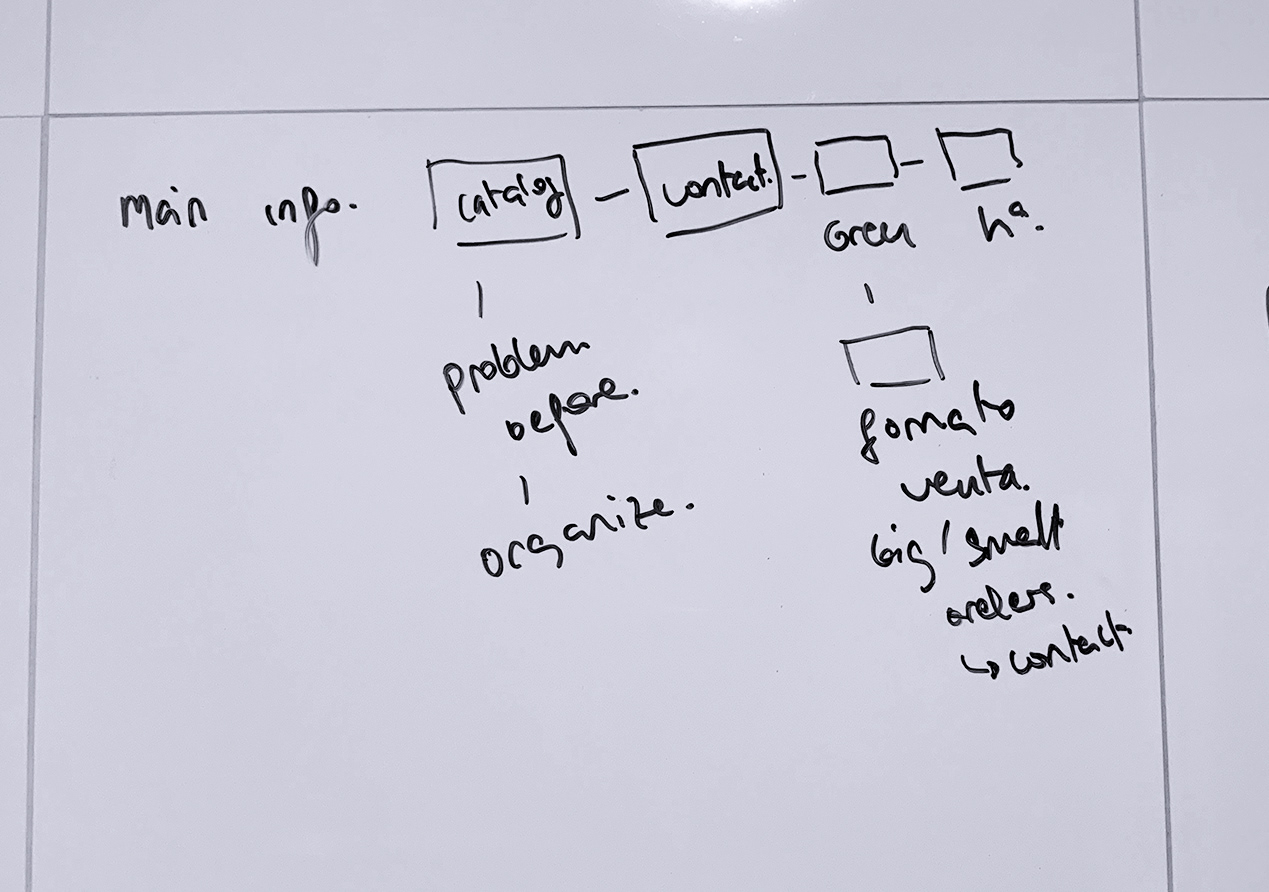 main info.
catalog - contact. - -
Green hª.
problem
before.
organize.
fomato
venta.
big / small
orders.
↳ contact.